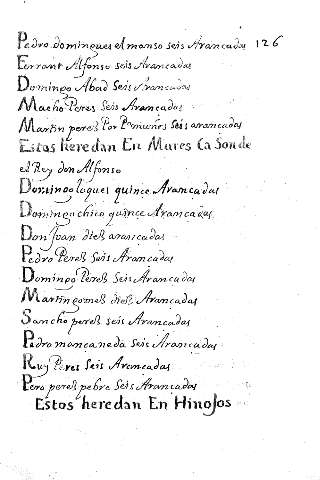 Pedro domingues el manso seis Arancadas 126
Ferrant Alfonso seis Arancadas
Domingo Abad Seis Arancadas
Macho Peres Seis Arancadas
Martin perez Por Pemuñes Seis arancadas
Estos heredan En Mures Ca Son de
el Rey don Alfonso
Domingo loques quince Arancadas
Domingo chico quince Arancadas
Don Juan diez arancadas
Pedro Perez Seis Arancadas
Domingo Perez Seis Arancadas
Martin gomez diez Arancadas
Sancho perez seis Arancadas
Pedro mancaneda seis Arancadas
Ruy Peres Seis Arancadas
Pero perez pebre Seis Arancadas
Estos heredan En Hinojos